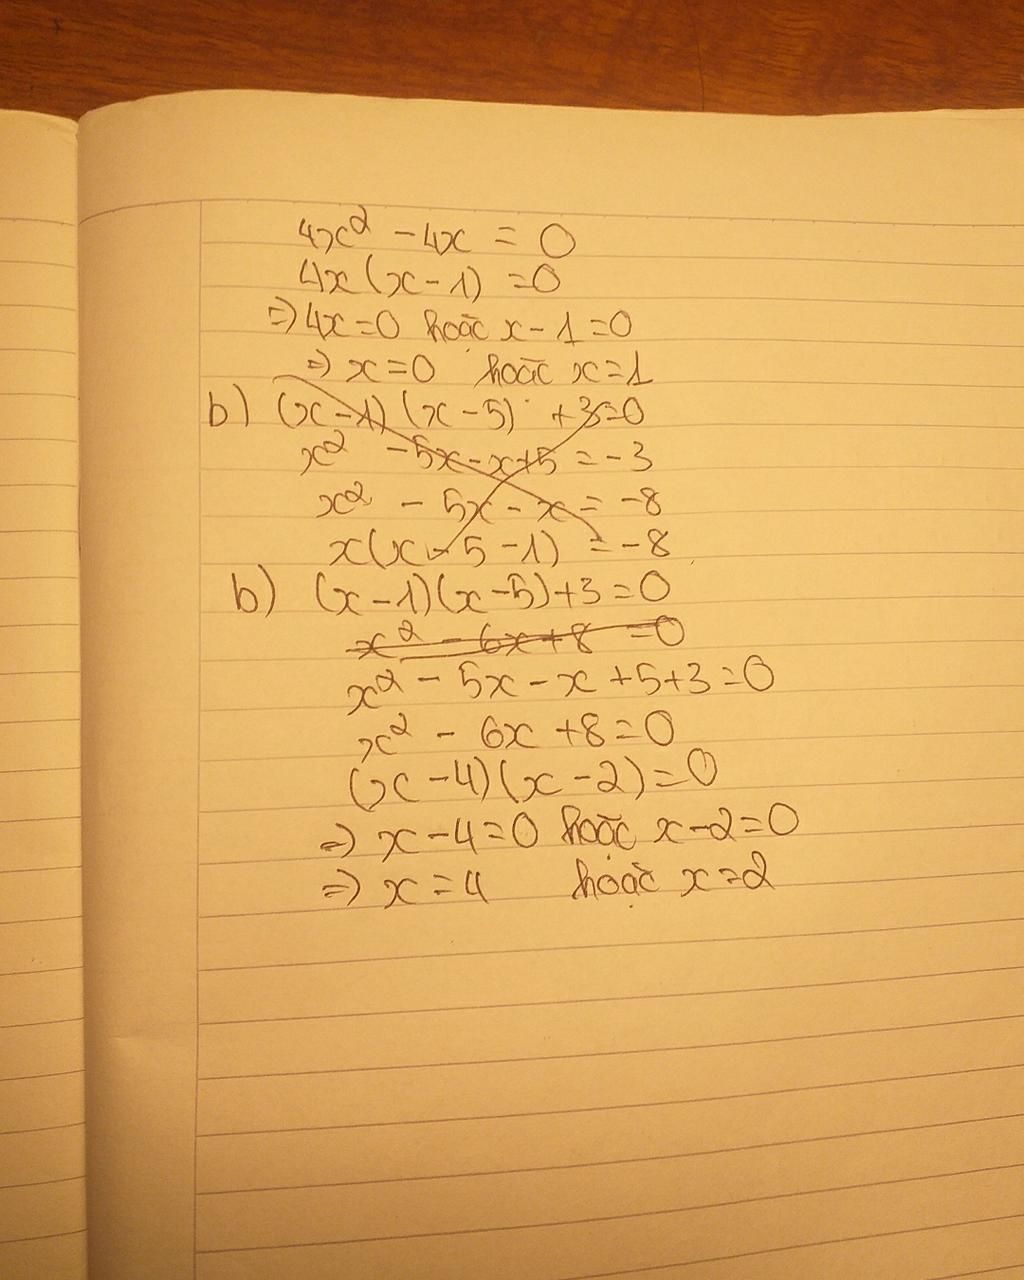 4x² - 4x = 0
4x(x - 1) = 0
=> 4x = 0 hoặc x - 1 = 0
=> x = 0 hoặc x = 1
b) (x - 1)(x - 5) + 3 = 0
x² - 5x - x + 5 = -3
x² - 5x - x = -8
x(x - 5 - 1) = -8
b) (x - 1)(x - 5) + 3 = 0
x² - 6x + 8 = 0
x² - 5x - x + 5 + 3 = 0
x² - 6x + 8 = 0
(x - 4)(x - 2) = 0
=> x - 4 = 0 hoặc x - 2 = 0
=> x = 4 hoặc x = 2